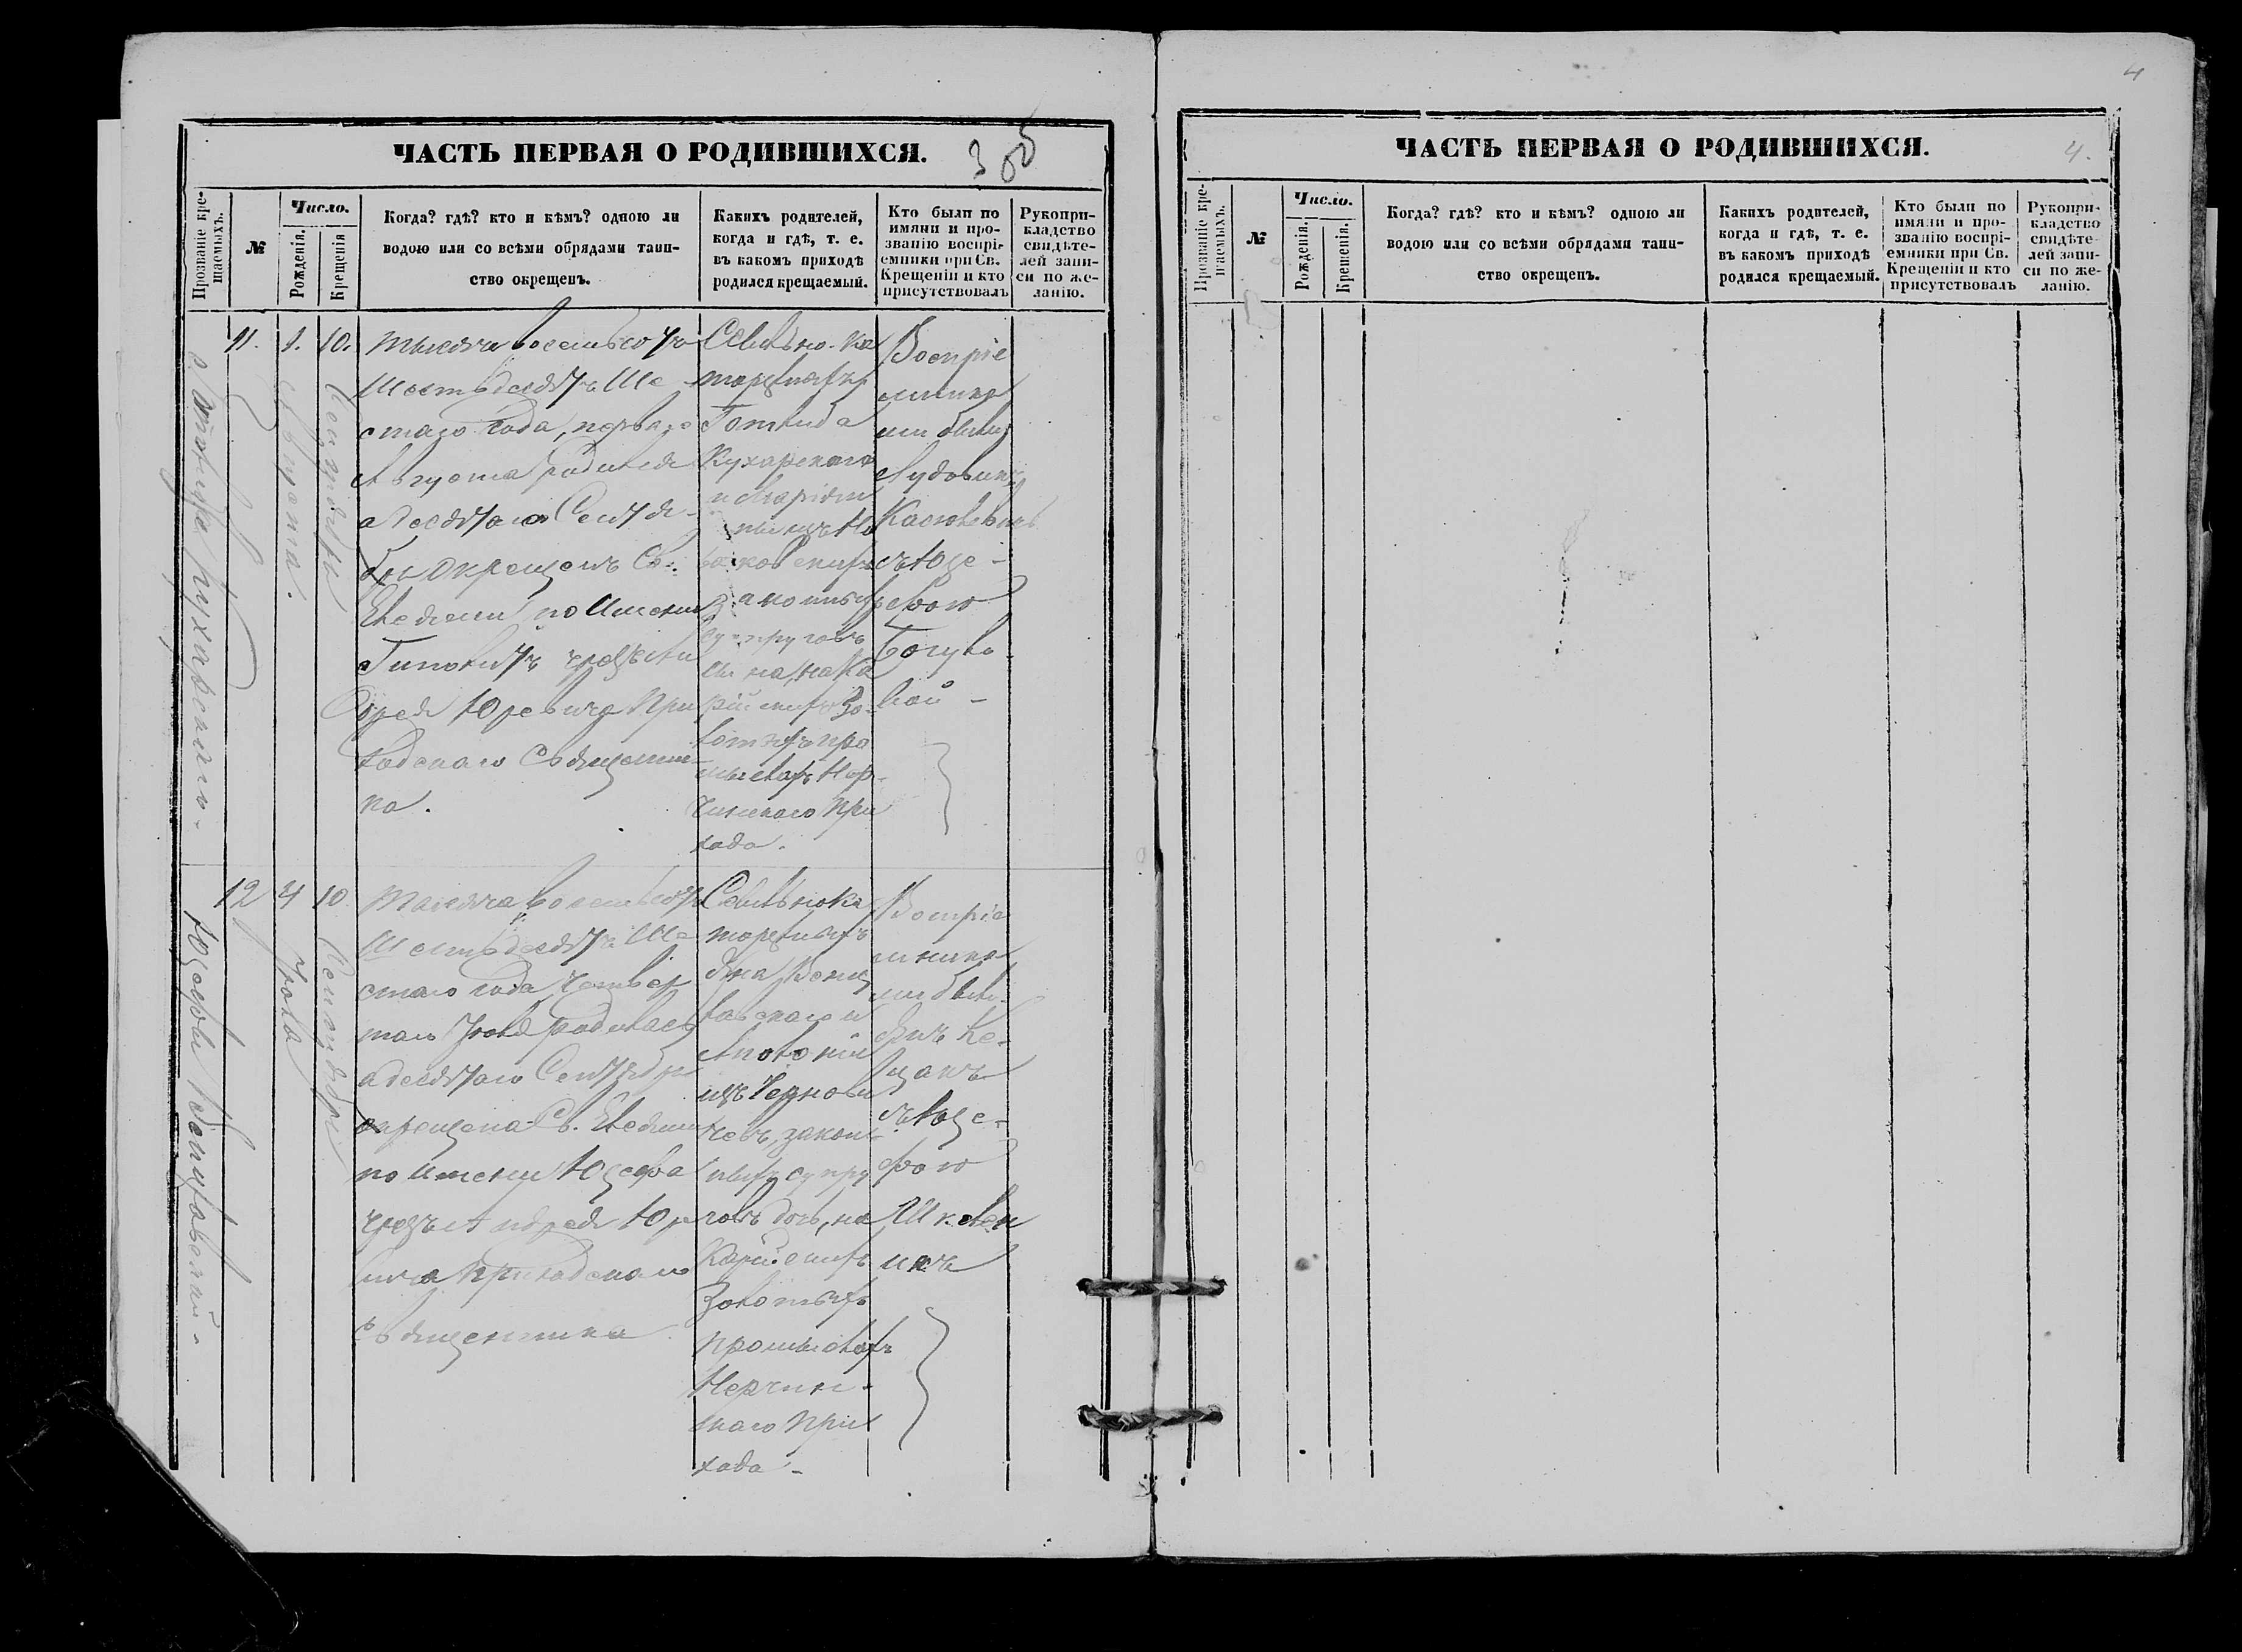 ЧАСТЬ ПЕРВАЯ О РОДИВШИХСЯ.
Прозваніе кре-
щаемыхъ.
№
Число.
Рожденія.
Крещенія
Когда? гдѣ? кто и кѣмъ? одною ли
водою или со всѣми обрядами таин-
ство окрещенъ.
Какихъ родителей,
когда и гдѣ, т. е.
въ какомъ приходѣ
родился крещаемый.
Кто были по
имяни и про-
званію воспрі-
емники при Св.
Крещеніи и кто
присутствовалъ
Рукопри-
кладство
свидѣте-
лей запи-
си по же-
ланію.
11.
1.
Августа.
10.
Сентября
Тысяча восемьсотъ
шестьдесятъ ше-
стаго года, перваго
Августа родился
а десятаго Сентя-
бря окрещенъ Св.
Елеемъ по имени
чрезъ Ан
дрея Юревича При
ходскаго Священни
ка.
Сѣльно-ка
торжныхъ
Готлиба
Кухарскаго
и Маріян
ны изъ Но
ваковскихъ
законныхъ
супруговъ
сына, на Ка
рійскихъ Зо-
лотыхъ про
мыслахъ Нер-
чинскаго При
хода.
Воспріе
мника
ми были
Лудовикъ
съ Юзе-
фою
12
4
Іюля
10
Сентября
Юзефы
Тысяча восемьсотъ
шестьдесятъ ше
стаго года четвер
таго Іюля родилась
а десятаго Сентября
окрещена Св. Елеемъ
по имени Юзефа
чрезъ Андрея Юре
вича Приходскаго
Священника
Сѣльнока
торжныхъ
Яна
и
Аполоніи
изъ Чернови
чевъ, закон-
ныхъ супру
говъ дочь, на
Карійскихъ
Золотыхъ
промыслахъ
Нерчин-
скаго При
хода -
Воспріе
мника
ми были
Янъ
съ Юзе-
фою
4
ЧАСТЬ ПЕРВАЯ О РОДИВШИХСЯ.
4.
Прозваніе кре-
щаемыхъ.
№
Число.
Рожденія.
Крещенія.
Когда? гдѣ? кто и кѣмъ? одною ли
водою или со всѣми обрядами таин-
ство окрещенъ.
Какихъ родителей,
когда и гдѣ, т. е.
въ какомъ приходѣ
родился крещаемый.
Кто были по
имяни и про-
званію воспрі-
емники при Св.
Крещеніи и кто
присутствовалъ
Рукопри-
кладство
свидѣте-
лей запи-
си по же-
ланію.